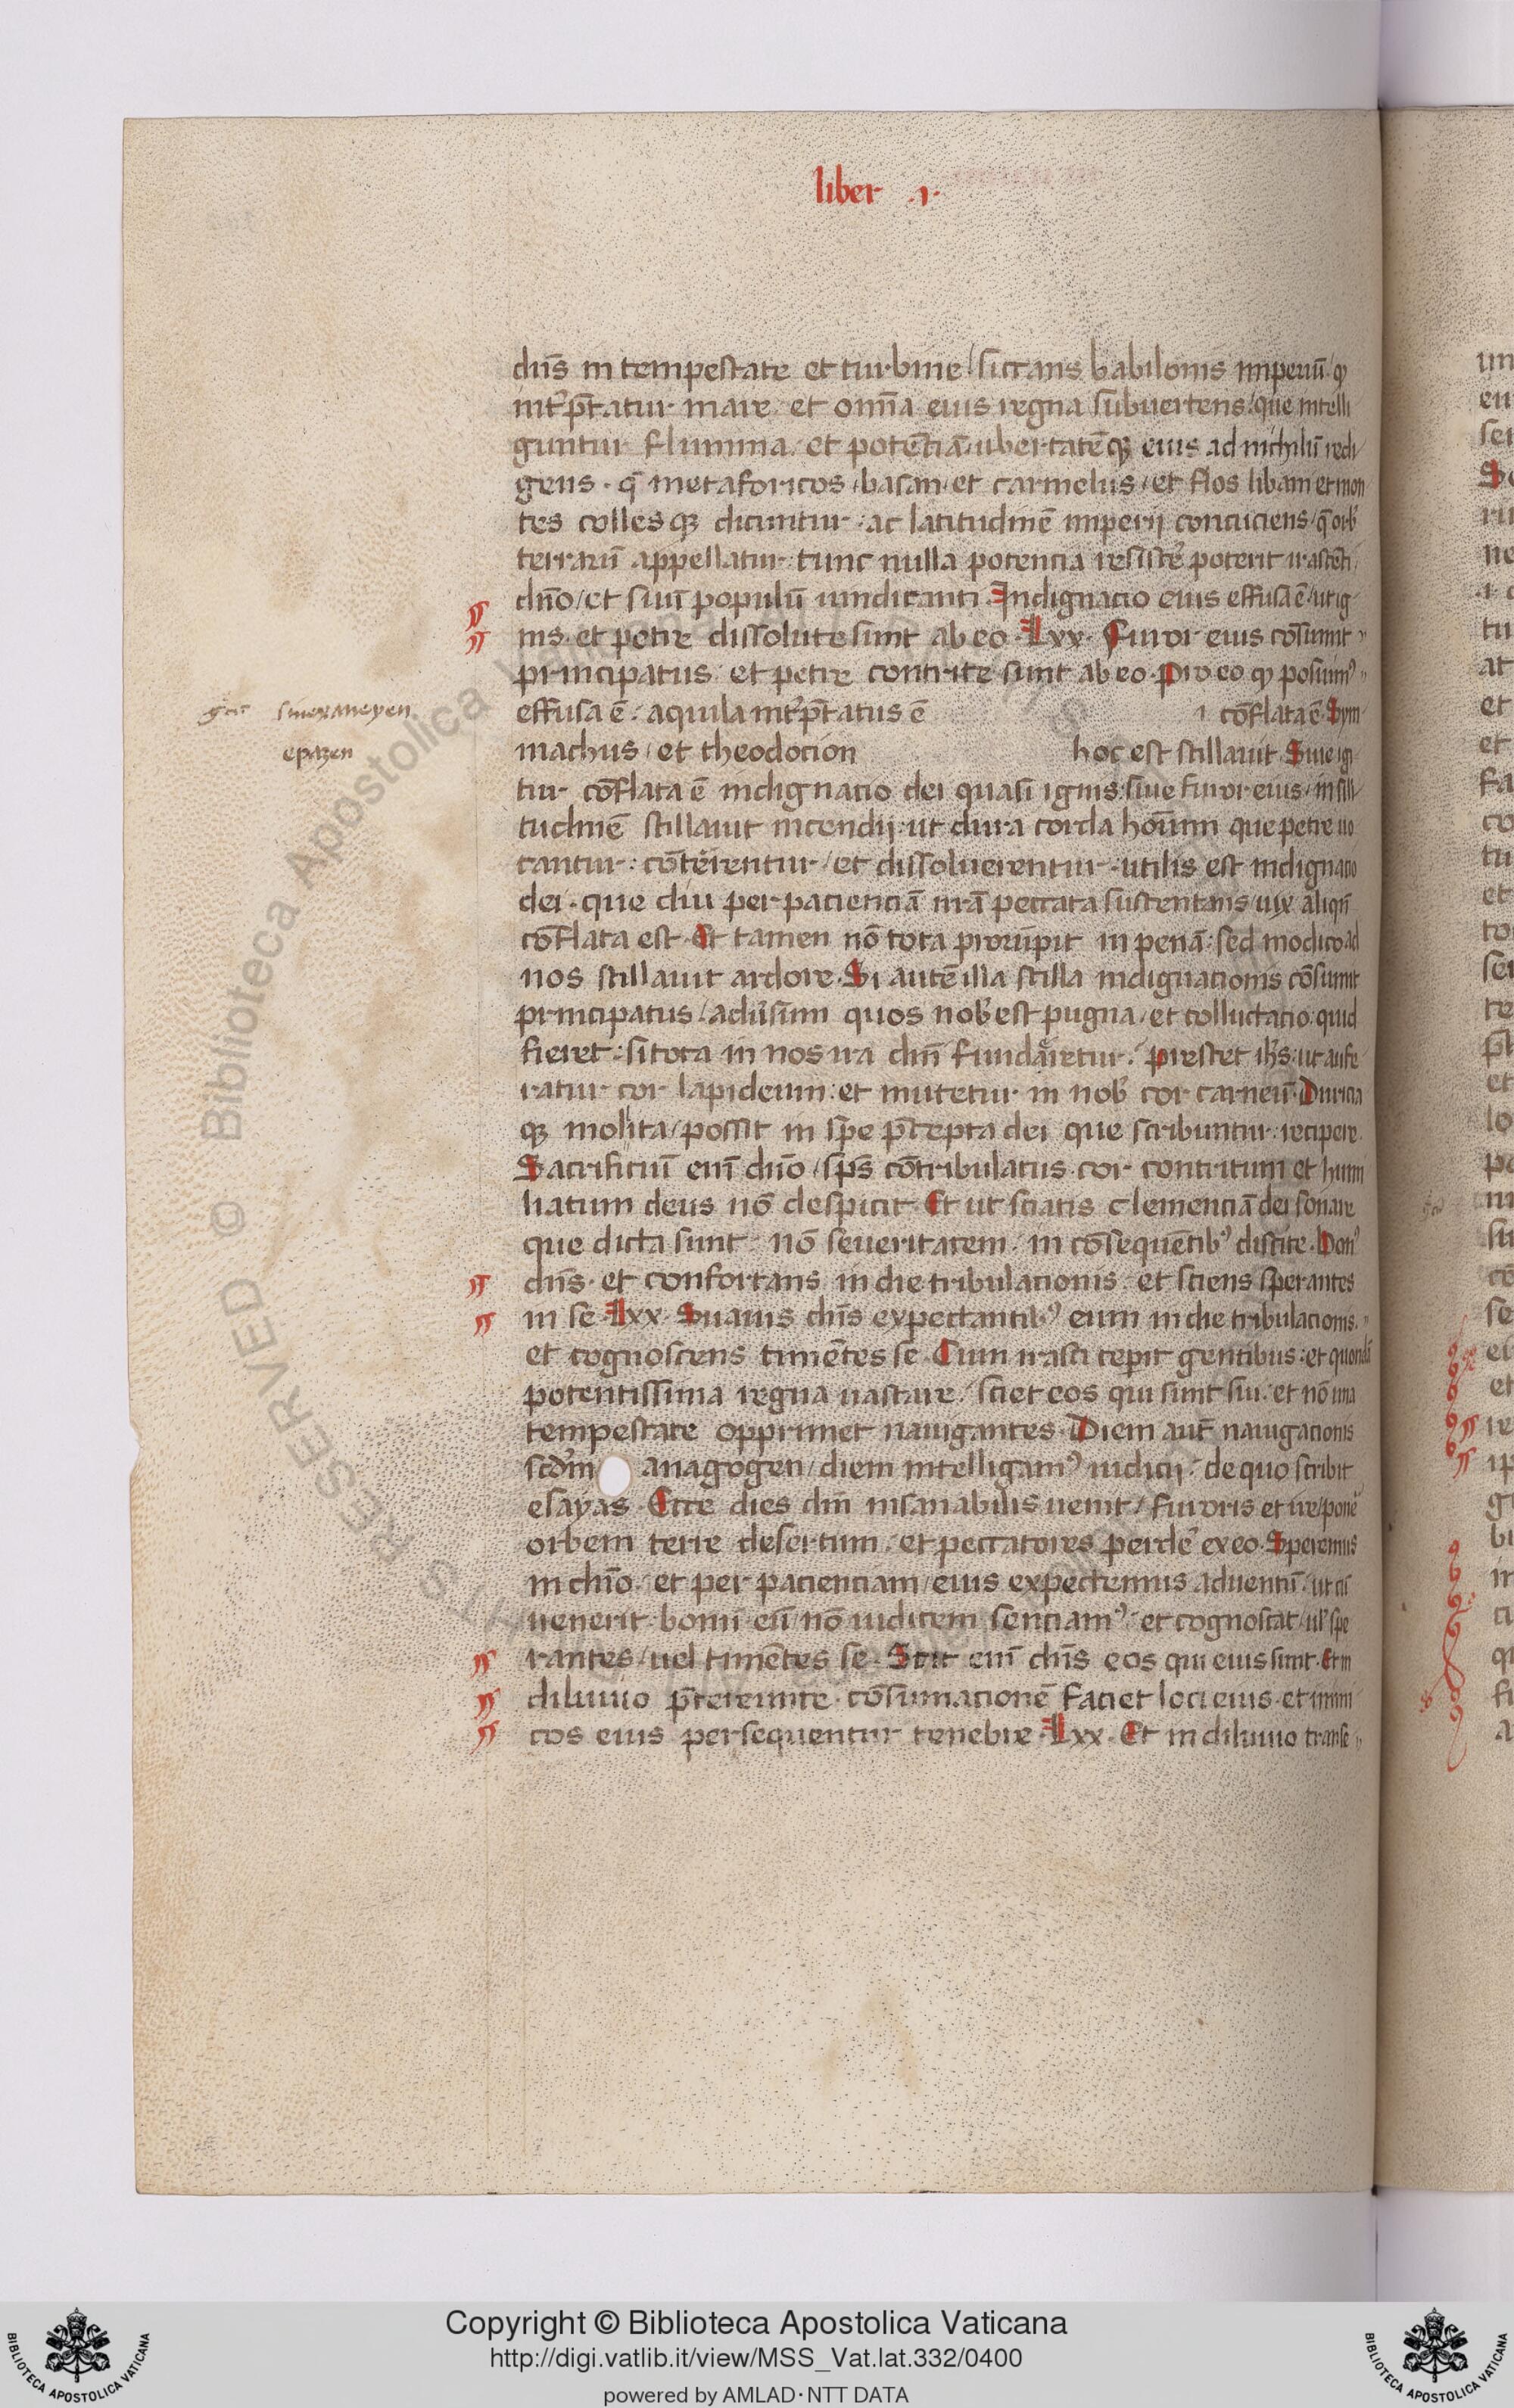 liber .1.
dn̄s in tempestate et turbine / siccans babilonis imperiū / qd
int̄p̄tatur mare. et om̄ia eius regna subuertens / que intelli
guntur flumina. et potētiā / ubertatēqꝫ eius ad nichilū redi
gens. q̄ metaforicos / basan / et carmelus / et flos libani et mon
tes collesqꝫ dicuntur. ac latitudinē imperij concuciens / q̄ orb̄
terrarū appellatur. tunc nulla potencia resistē poterit irascēti
dn̄o / et suū populū uindicanti. Indignacio eius effusa ē / ut ig
nis. et petre dissolute sunt ab eo. Lxx. Furor eius cōsumit
principatus. et petre contrite sunt ab eo. Pro eo qd posuimꝰ
gr̄ sinexaneyen
effusa ē. aquila int̄p̄tatus ē ı cōflata ē. Sym
epazen
machus / et theodocion hoc est stillauit. Siue igi
tur cōflata ē indignacio dei quasi ignis: siue furor eius / in sili
tudinē stillauit incendij: ut dura corda hoīum que petre uo
cantur: cōtererentur / et dissoluerentur. utilis est indignacio
dei. que diu per pacienciā nr̄a peccata sustentans / uix aliqn̄
cōflata est. Et tamen nō tota prorūpit in penā: sed modico ad
nos stillauit ardore. Si autē illa stilla indignacionis cōsumit
principatus / aduersum quos nob̄ est pugna / et colluctacio: quid
fieret: si tota in nos ira dn̄i fundaretur. prestet ih̄s: ut aufe
ratur cor lapideum: et mutetur in nob̄ cor carneū. Duricia
qꝫ mollita / possit in sp̄e p̄cepta dei que scribuntur: recipere.
Sacrificiū enī dn̄o / sp̄s cōtribulatus. cor contritum et humi
liatum deus nō despicit. Et ut sciatis clemenciā dei sonare
que dicta sunt: nō seueritatem. in cōsequētibꝰ discite. Bonꝰ
dn̄s. et confortans in die tribulacionis. et sciens sperantes
in se. Lxx. Suauis dn̄s expectantibꝰ eum in die tribulacionis.
et cognoscens timētes se. Cum irasci cepit gentibus: et quondā
potentissima regna uastare. sciet eos qui sunt sui. et nō una
tempestate opprimet nauigantes. Diem aut̄ nauigacionis
scd̄m anagogen / diem intelligamꝰ iudicij. de quo scribit
esayas. Ecce dies dn̄i insanabilis uenit / furoris et ire / ponē
orbem terre desertum. et peccatores perdē ex eo. Speremus
in chr̄o. et per pacienciam / eius expectemus aduentū. ut cū
uenerit: bonū eū nō iudicem senciamꝰ. et cognoscat / ul̄ spe
rantes / uel timētes se. Scit enī dn̄s eos qui eius sunt. Et in
diluuio p̄tereunte. cōsumacionē faciet loci eius. et inimi
cos eius persequentur tenebre. Lxx. Et in diluuio transe
Copyright © Biblioteca Apostolica Vaticana
http://digi.vatlib.it/view/MSS_Vat.lat.332/0400
powered by AMLAD·NTT DATA